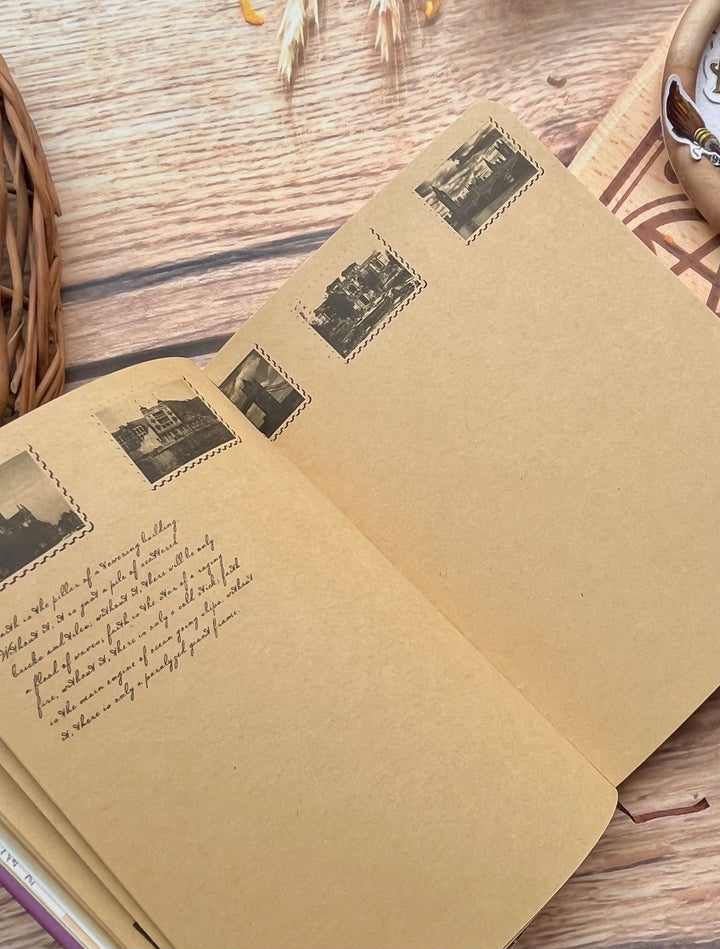 Faith is the pillar of a towering building.
Without it, it is just a pile of scattered
bricks and tiles; without it, there will be only
a flood of waves; faith is the star of a raging
fire, without it, there is only a cold stick; faith
is the main engine of ocean going ships, without
it, there is only a paralyzed giant frame.